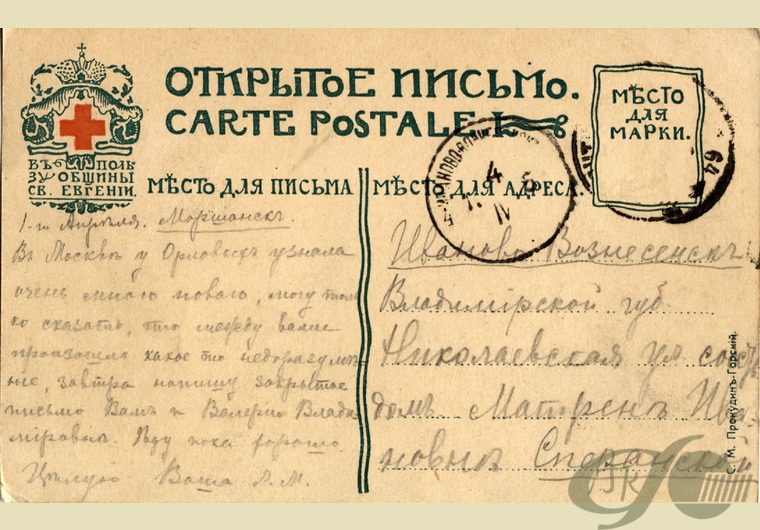 ОТКРЫТОЕ ПИСЬМО.
CARTE POSTALE.
ВЪ ПОЛЬ
ЗУ ОБЩИНЫ
СВ. ЕВГЕНІИ.
МѢСТО
ДЛЯ
МАРКИ.
МѢСТО ДЛЯ ПИСЬМА
МѢСТО ДЛЯ АДРЕСА.
4
IV
64
1-го Апрѣля. Моршанскъ.
Въ Москвѣ у Орловскъ узнала
очень много новаго, могу толь
ко сказать, что между вами
произошло какое то недоразумѣ
ніе, завтра напишу закрытое
письмо Вамъ и Валеріи Влади
міровнѣ. Ѣду пока хорошо.
Цѣлую Ваша М.
Иваново Вознесенскъ
Владимірской губ
Николаевская ул сост
домъ Матренѣ Ива
новнѣ Сперанской
С. М. Прокудинъ-Горскій.